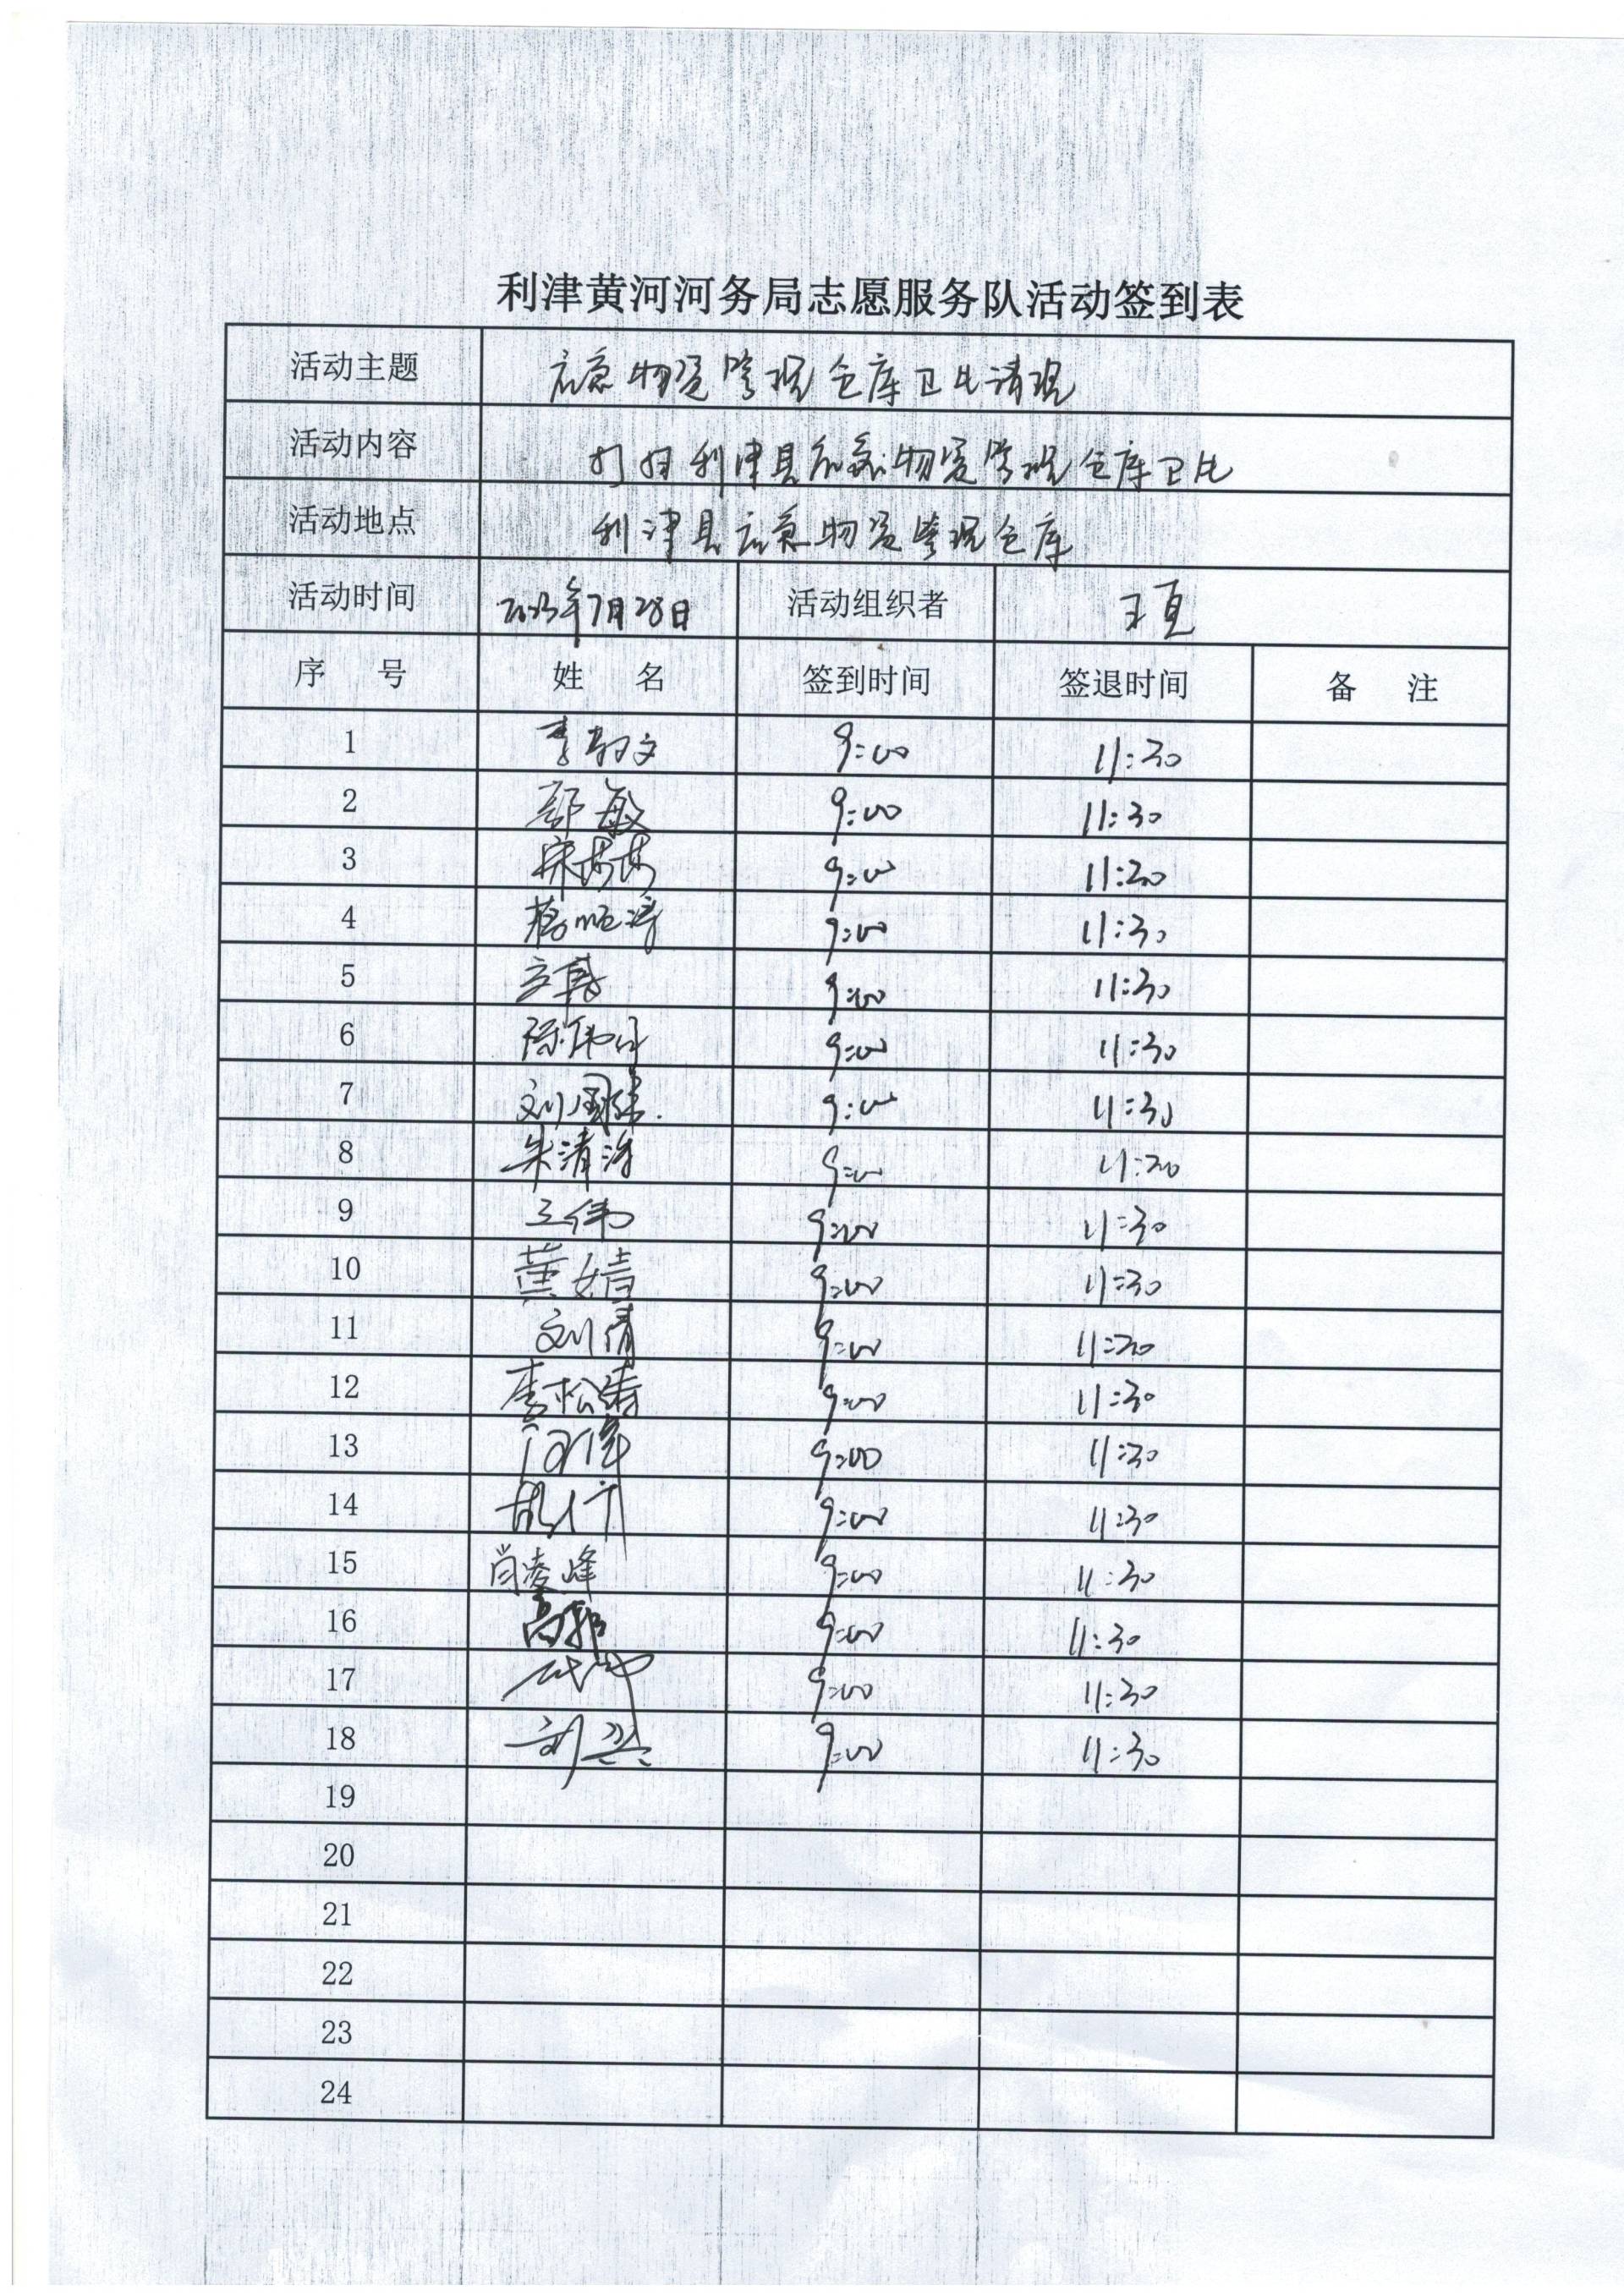 利津黄河河务局志愿服务队活动签到表
活动主题 应急物资管理仓库卫生清理
活动内容 打扫利津县应急物资管理仓库卫生
活动地点 利津县应急物资管理仓库
活动时间 2023年7月28日 活动组织者 王真
序 号 姓 名 签到时间 签退时间 备 注
1 李 文 9:00 11:30
2 郭敏 9:00 11:30
3 宋苏苏 9:00 11:30
4 9:00 11:30
5 9:00 11:30
6 9:00 11:30
7 刘国强 9:00 11:30
8 朱清 9:00 11:30
9 王伟 9:00 11:30
10 黄婧 9:00 11:30
11 刘倩 9:00 11:30
12 李松涛 9:00 11:30
13 9:00 11:30
14 9:00 11:30
15 尚凌峰 9:00 11:30
16 高 9:00 11:30
17 9:00 11:30
18 刘 9:00 11:30
19
20
21
22
23
24